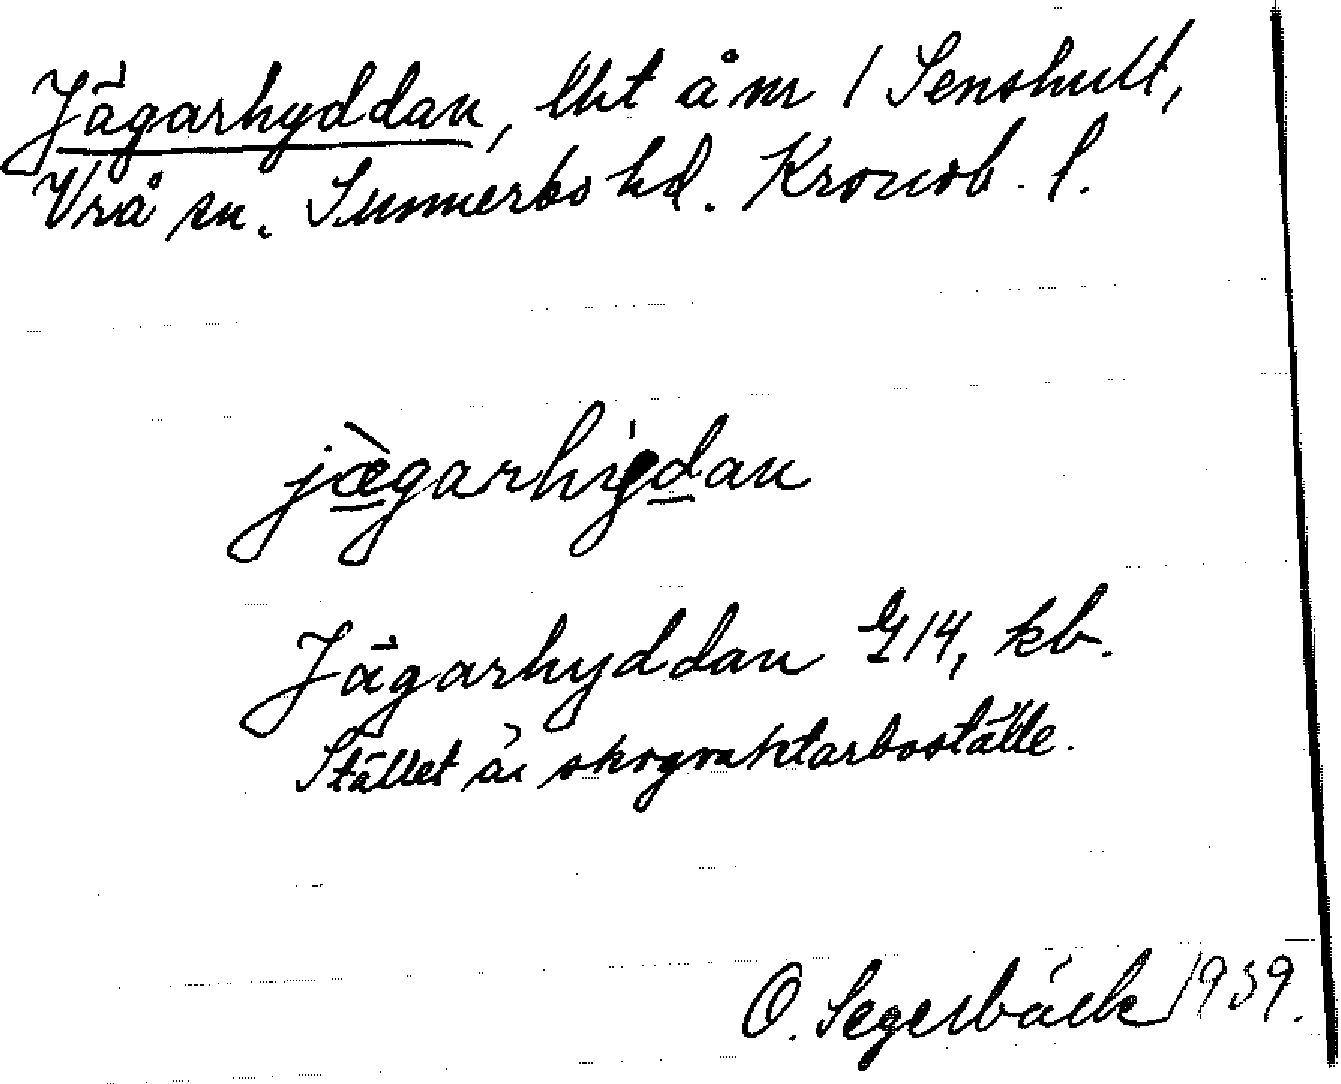 Jägarhyddan, lht å nr 1 Senshult,
Vrå sn. Sunnerbo hd. Kronob. l.
jæ̀garhyd̲an
Jägarhyddan G 14, kb.
Stället är skogvaktarboställe.
O. Segerbäck 1939.